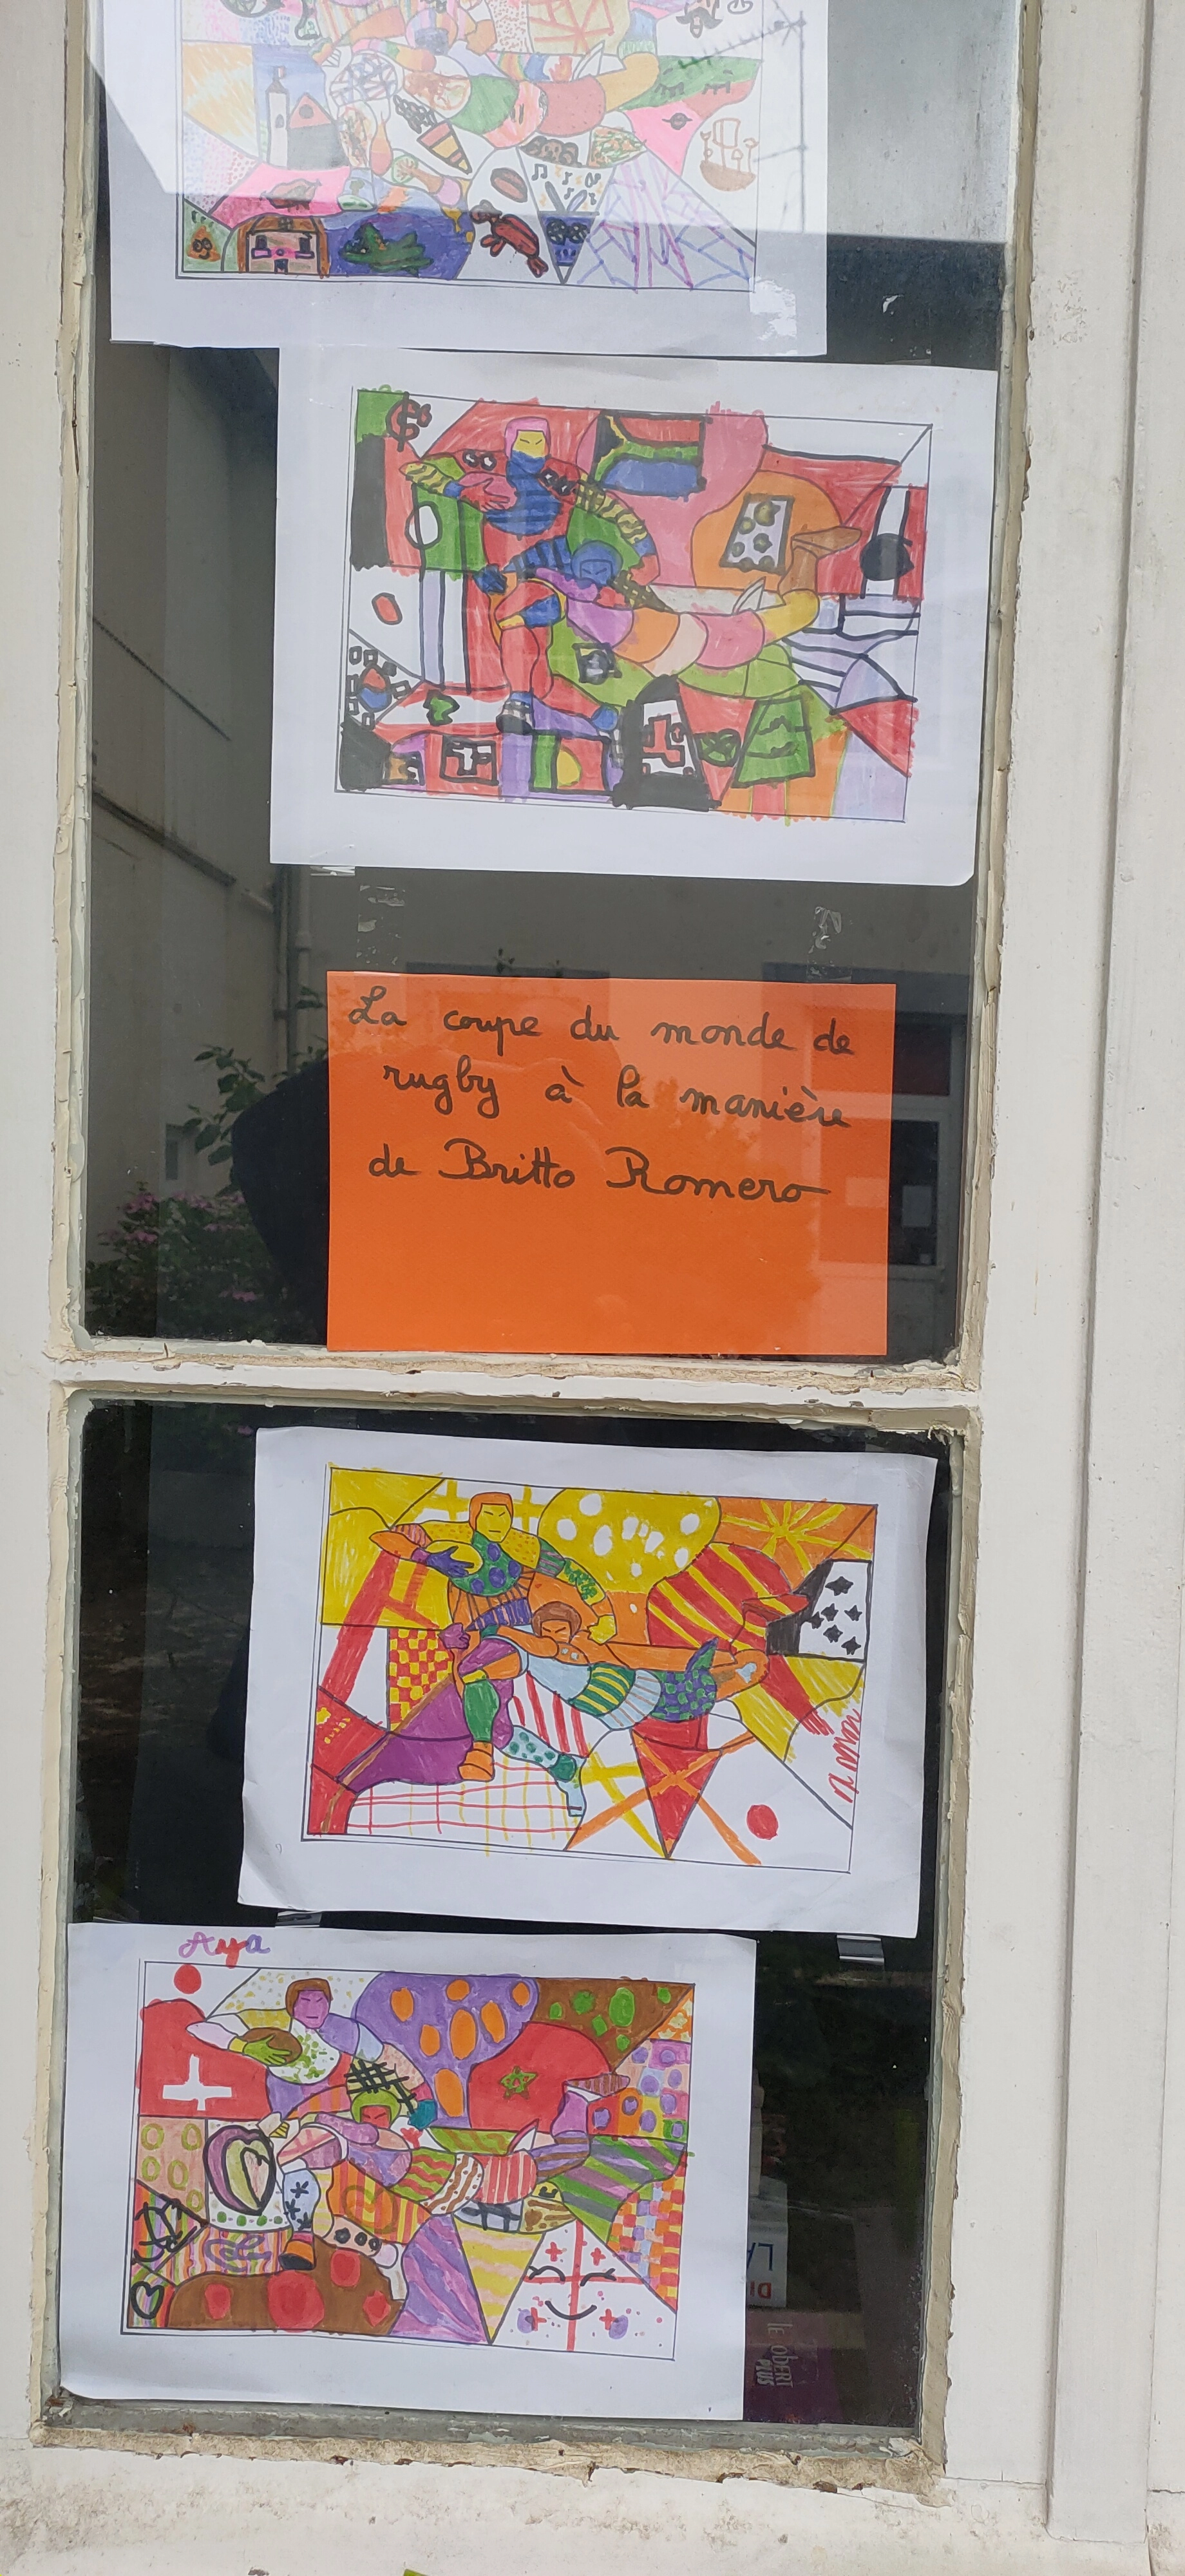 La coupe du monde de
rugby à la manière
de Britto Romero
Aya